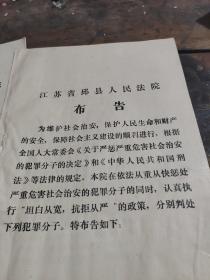 江苏省邱县人民法院
布告
为维护社会治安，保护人民生命和财产
的安全，保障社会主义建设的顺利进行，根据
全国人大常委会《关于严惩严重危害社会治安
的犯罪分子的决定》和《中华人民共和国刑
法》等法律的规定，本院在依法从重从快惩处
严重危害社会治安的犯罪分子的同时，认真执
行“坦白从宽，抗拒从严”的政策，分别判处
下列犯罪分子。特布告如下：